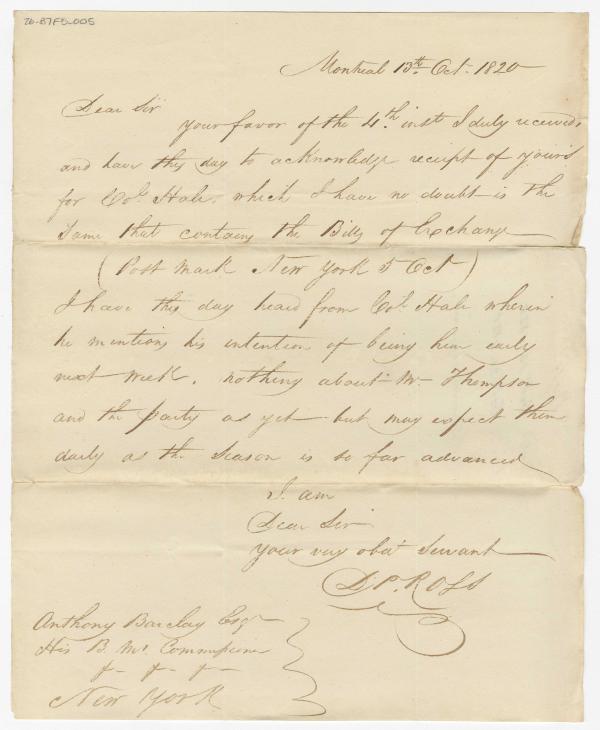 26-B7F5-005
Montreal 13th Oct. 1820
Dear Sir
your favor of the 4th. inst. I duly received,
and have this day to acknowledge receipt of yours
for Col. Hale, which I have no doubt is the
Same that contains the Bills of Exchange
(Post Mark New York 5 Oct)
I have this day heard from Col. Hale wherein
he mentions his intention of being here early
next Week, nothing about Mr Thompson
and the party as yet but may expect them
daily as the Season is so far advanced
I am
Dear Sir
Your very obdt Servant
D. P. ROSS
Anthony Barclay Esqr
His B. M. Commissioner
New York